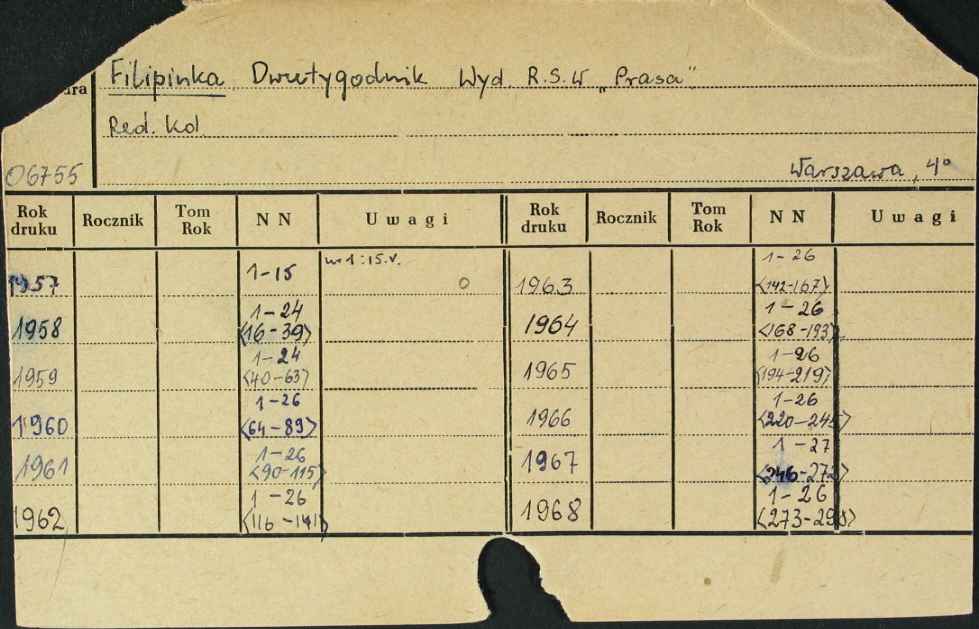 Filipinka Dwutygodnik Wyd. R.S.W „Prasa"
ura
Red. Kol
06755
Warszawa, 4°
Rok druku Rocznik Tom Rok N N Uwagi Rok druku Rocznik Tom Rok N N Uwagi
1957 1-15 nr 1:15.V. 1963 1-26 <142-167>
1958 1-24 <16-39> 1964 1-26 <168-193>
1959 1-24 <40-63> 1965 1-26 <194-219>
1960 1-26 <64-89> 1966 1-26 <220-245>
1961 1-26 <90-115> 1967 1-27 <246-272>
1962 1-26 <116-141> 1968 1-26 <273-298>